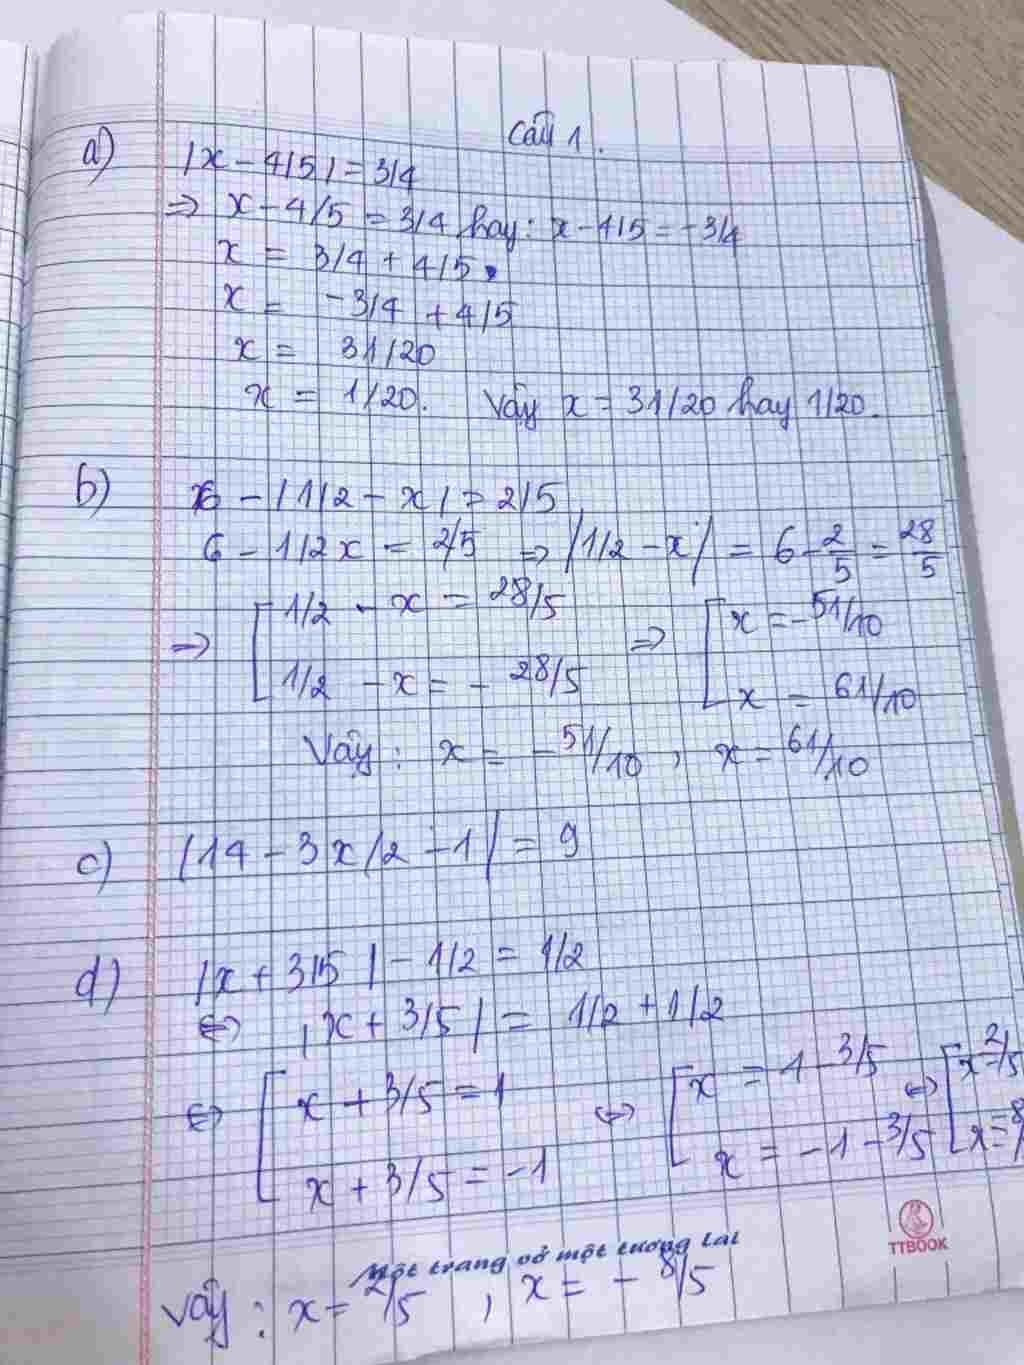 Câu 1.
a) |x - 4/5| = 3/4
⇒ x - 4/5 = 3/4 hay: x - 4/5 = -3/4
x = 3/4 + 4/5
x = -3/4 + 4/5
x = 31/20
x = 1/20. Vậy x = 31/20 hay 1/20.
b) 6 - |1/2 - x| = 2/5
6 - 1/2x = 2/5 ⇒ |1/2 - x| = 6 - 2/5 = 28/5
⇒ [ 1/2 - x = 28/5 ⇒ [ x = -51/10
1/2 - x = - 28/5 x = 61/10
Vậy: x = - 51/10, x = 61/10
c) |14 - 3x/2 - 1| = 9
d) |x + 3/5| - 1/2 = 1/2
⇔ |x + 3/5| = 1/2 + 1/2
⇔ [ x + 3/5 = 1 ⇔ [ x = 1 - 3/5 ⇔ [ x = 2/5
x + 3/5 = -1 x = -1 - 3/5 x = 8/
TTBOOK
Một trang vở một tương lai
Vậy: x = 2/5, x = - 8/5